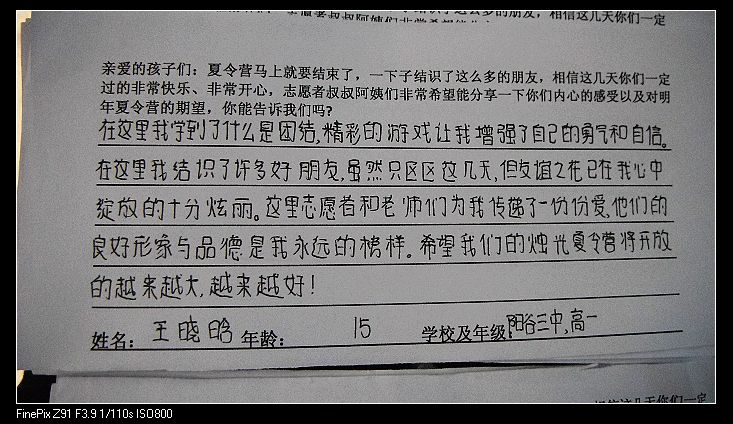 志愿者叔叔阿姨们非常希望能分
了这么多的朋友，相信这几天你们一定
亲爱的孩子们：夏令营马上就要结束了，一下子结识了这么多的朋友，相信这几天你们一定
过的非常快乐、非常开心，志愿者叔叔阿姨们非常希望能分享一下你们内心的感受以及对明
年夏令营的期望，你能告诉我们吗？
在这里我学到了什么是团结,精彩的游戏让我增强了自己的勇气和自信。
在这里我结识了许多好朋友,虽然只区区这几天,但友谊之花已在我心中
绽放的十分炫丽。这里志愿者和老师们为我传递了一份份爱,他们的
良好形象与品德是我永远的榜样。希望我们的烛光夏令营将开放
的越来越大,越来越好！
姓名： 王晓晗 年龄： 15 学校及年级: 阳谷三中,高一
相信这几天你们一定
FinePix Z91 F3.9 1/110s ISO800